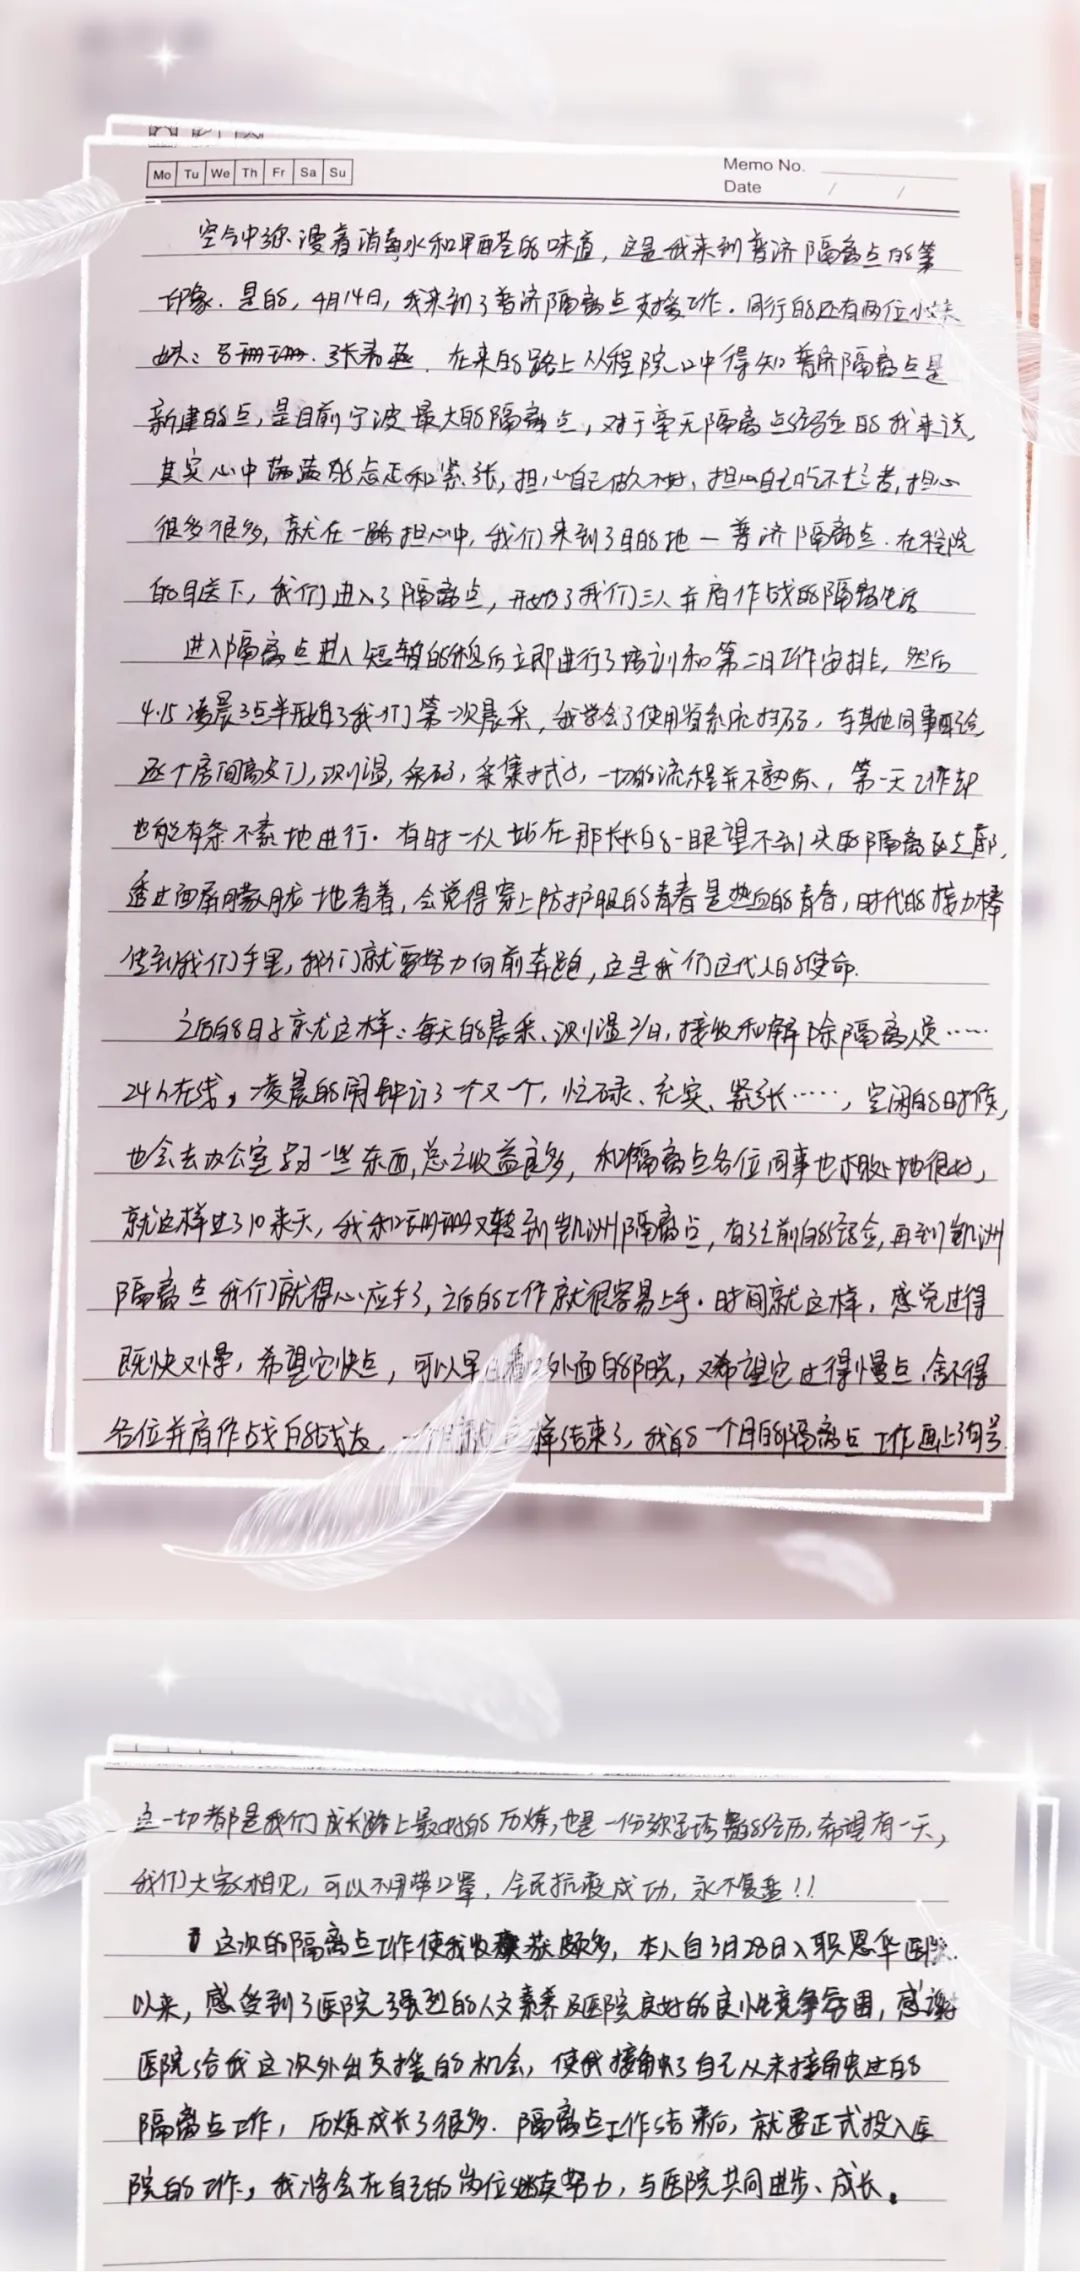 Mo Tu We Th Fr Sa Su
Memo No.
Date / /
空气中弥漫着消毒水和甲醛的味道，这是我来到普济隔离点的第
印象．是的，4月14日，我来到了普济隔离点支援工作．同行的还有两位小
妹：吕珊珊．张希燕．在来的路上从程院口中得知普济隔离点是
新建的点，是目前宁波最大的隔离点，对于毫无隔离点经验的我来说，
其实心中满满忐忑和紧张，担心自己做不好，担心自己吃不了苦，担心
很多很多，就在一路担心中，我们来到了目的地—普济隔离点．在程院
的目送下，我们进入了隔离点，开始了我们三人并肩作战的隔离生活
进入隔离点 短暂的休息后立即进行了培训和第二日工作安排，然后
4.15凌晨3点半开始了我们第一次晨采，我学会了使用省系统扫码，与其他同事配合
逐个房间敲门，测温，采码，采集拭子，一切的流程并不熟练，第一天工作却
也能有条不紊地进行．有时一人站在那长长的一眼望不到头的隔离点走廊，
透过面屏朦胧地看着，会觉得穿上防护服的青春是热血的青春，时代的接力棒
传到我们手里，我们就要努力向前奔跑，这是我们这代人的使命．
之后的日子就这样：每天的晨采、测温2/日，接收和解除隔离人员……
24h在线，凌晨的闹钟订了一个又一个，忙碌、充实、紧张……，空闲的时候，
也会去办公室学习一些东西，总之收益良多，和隔离点各位同事也相处地很好，
就这样过了10来天，我和珊珊又转到凯洲隔离点，有了之前的经验，再到凯洲
隔离点我们就得心应手了，之后的工作就很容易上手．时间就这样，感觉过得
既快又慢，希望它快点，可以早日看口外面的阳光，又希望它过得慢点，舍不得
各位并肩作战的战友，一个月就这样结束了，我的一个月的隔离点工作画上句号．
这一切都是我们成长路上最好的历炼，也是一份弥足珍贵的经历．希望有一天，
我们大家相见，可以不用带口罩，全民抗疫成功，永不复盘！！
这次的隔离点工作使我收获颇多，本人自3月28日入职恩华医院
以来，感受到了医院强烈的人文素养及医院良好的良性竞争氛围，感谢
医院给我这次外出支援的机会，使我接触了自己从未接触过的
隔离点工作，历炼成长了很多．隔离点工作结束后，就要正式投入医
院的工作，我将会在自己的岗位继续努力，与医院共同进步、成长。